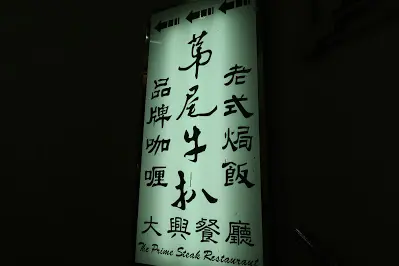 老式焗飯
苐尾牛扒
品牌咖喱
大興餐廳
The Prime Steak Restaurant